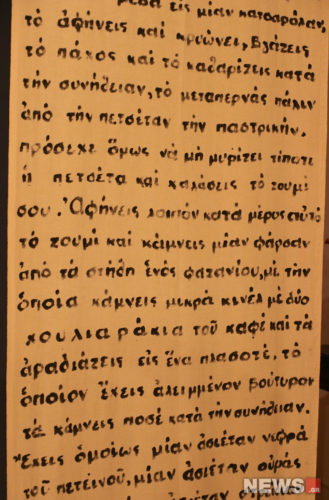 μέσα εἰς μίαν κατσαρόλαν,
τὸ ἀφήνεις καὶ κρυώνει, βγάζεις
τὸ πάχος καὶ τὸ καθαρίζεις κατὰ
τὴν συνήθειαν, τὸ μεταπερνᾶς πάλιν
ἀπὸ τὴν πετσέταν τὴν παστρικὴν.
πρόσεχε ὅμως νὰ μὴ μυρίζει τίποτε
ἡ πετσέτα καὶ χαλάσεις τὸ ζουμί
σου. Ἀφήνεις λοιπὸν κατὰ μέρος αὐτὸ
τὸ ζουμὶ καὶ κάμνεις μίαν φάρσαν
ἀπὸ τὰ στήθη ἑνὸς φαζανίου, μὲ τὴν
ὁποία κάμνεις μικρὰ κινέλ μὲ δύο
χουλιαράκια τοῦ καφὲ καὶ τὰ
ἀραδιάζεις εἰς ἕνα πλασοτέ, τὸ
ὁποῖον ἔχεις ἀλειμμένον βούτυρον
τὰ κάμνεις ποσὲ κατὰ τὴν συνήθειαν.
Ἔχεις ὁμοίως μίαν ἀσιέταν νιφρὰ
τοῦ πετεινοῦ, μίαν ἀσιέταν οὐρὰς
NEWS